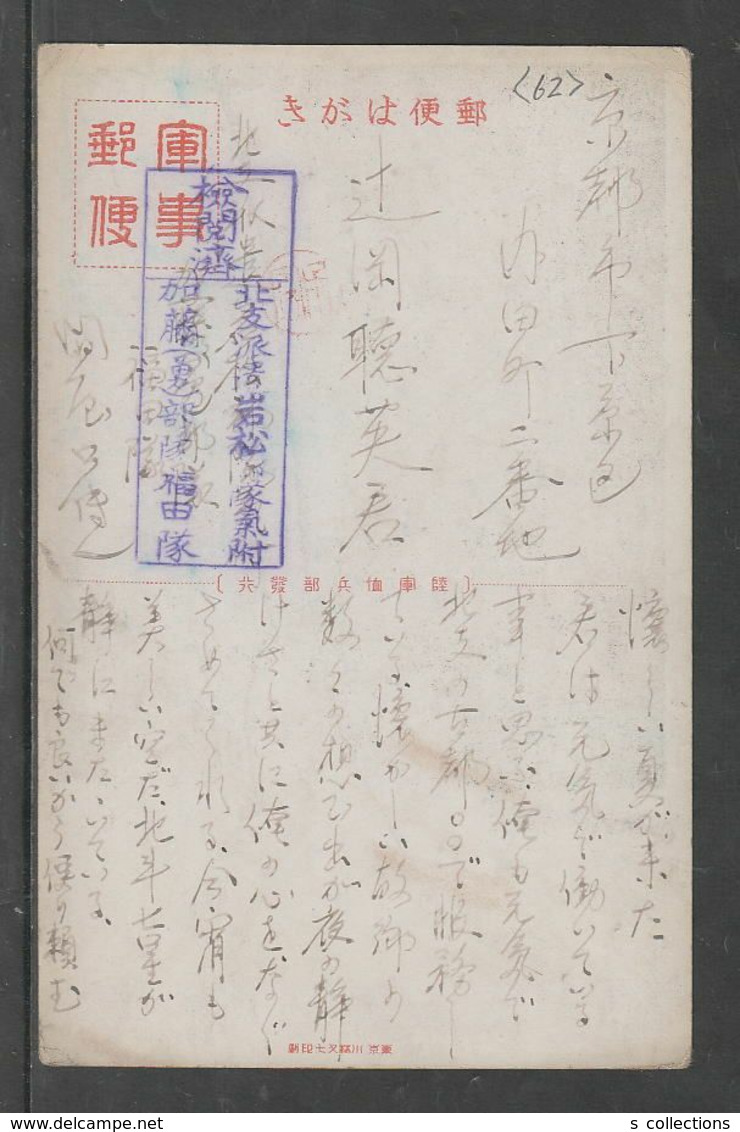 <62>
郵便はがき
軍事
郵便
京都市下京区
内田町二番地
辻岡聰英君
北支派遣
福田隊
檢閲濟
北支派遣岩松部隊氣附
加藤(勇)部隊福田隊
〔陸軍恤兵部發行〕
懐しい夏が来た
君は元気で働いている
事と思ふ俺も元気で
北支の古都〇〇で服務し
ている懐かしい故郷の
数々の想ひ出が夜の静
けさと共に俺の心をなぐ
さめてくれる、今宵も
美しい空だ、北斗七星が
静にまたゝいている、
何でも良いから便り頼む
東京 川端又七印刷
s collections